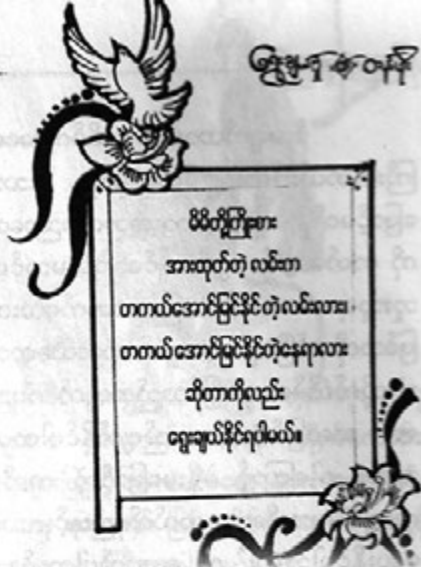 ရွေးချယ်မှု စွမ်းတန်ဖိုး
မိမိတို့ကြိုးစား
အားထုတ်တဲ့ လမ်းက
တကယ်အောင်မြင်နိုင်တဲ့ လမ်းလား။
တကယ်အောင်မြင်နိုင်တဲ့နေရာလား
ဆိုတာကိုလည်း
ရွေးချယ်နိုင်ရပါမယ်။